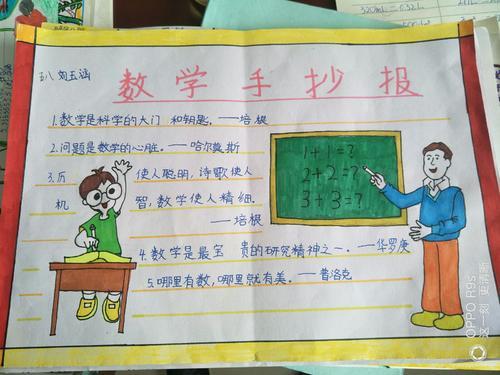 320mL=0.32L
五八 匆五涵
数学手抄报
1.数学是科学的大门 和钥匙。——培根
2.问题是数学的心脏。——哈尔莫斯
3.历 使人聪明，诗歌使人
机 智，数学使人精细.
——培根
4.数学是最宝 贵的研究精神之一.——华罗庚
5.哪里有数，哪里就有美.——普洛克
1+1=?
2+2=?
3+3=?
OPPO R9s
这一刻 更清晰